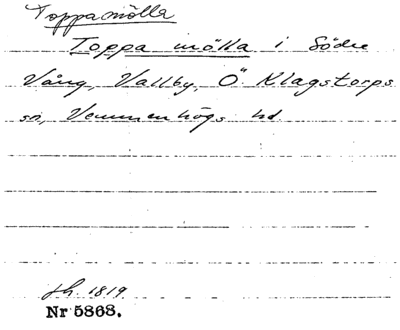 Toppamölla
Toppa mölla i Södre
Vång, Vallby, Ö Klagstorps
sn, Vemmenhögs hd
sh. 1819.
Nr 5868.